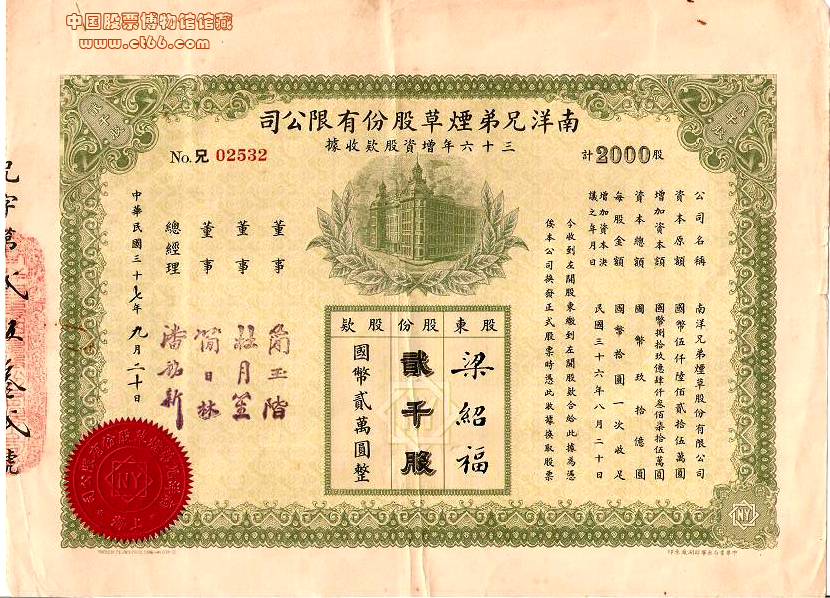 中国股票博物馆馆藏
www.ct66.com
南洋兄弟煙草股份有限公司
三十六年增資股款收據
No. 兄 02532
計2000股
貳千股
貳千股
公司名稱 南洋兄弟煙草股份有限公司
資本原額 國幣伍仟陸佰貳拾伍萬圓
增加資本額 國幣捌拾玖億肆仟叁佰柒拾伍萬圓
資本總額 國幣玖拾億圓
每股金額 國幣拾圓一次收足
增加資本決議之年月日 民國三十六年八月二十日
今收到左開股東繳到左開股款合給此據為憑
俟本公司換發正式股票時憑此收據換取股票
股東 梁紹福
股份 貳千股
股款 國幣貳萬圓整
董事
董事 杜月笙
董事 簡日林
總經理
中華民國三十七年九月二十日
NY
上海
NY